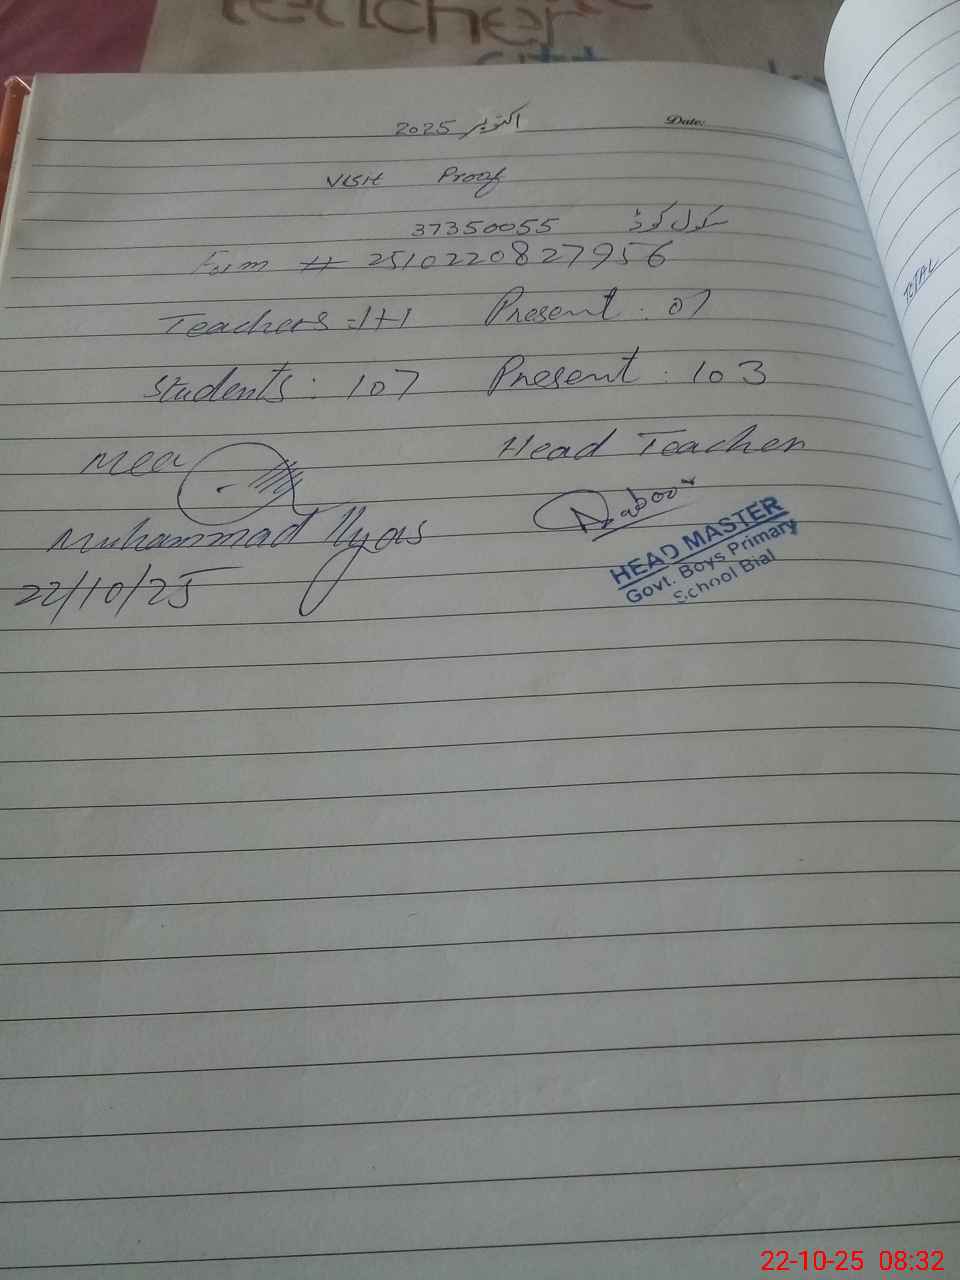 teacher
اکتوبر 2025
Date:
Visit Proof
37350055 سکول کوڈ
Form # 2510220827956
TOTAL
Teachers =1+1 Present : 01
Students : 107 Present : 103
Mea
Head Teacher
Muhammad Ilyas
HEAD MASTER
Govt. Boys Primary
School Bial
22/10/25
22-10-25 08:32